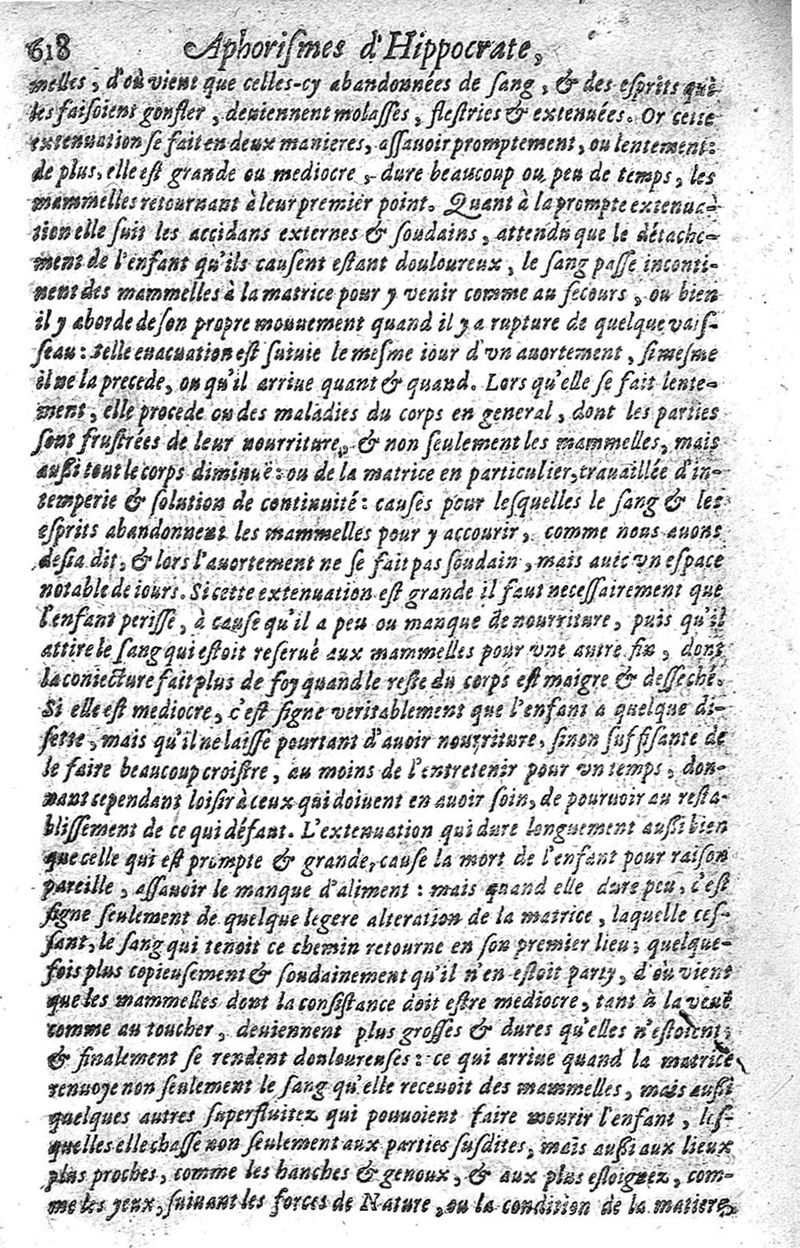 618 Aphoriſmes d'Hippocrate,
melles, d'où vient que celles-cy abandonnées de ſang, & des eſprits qui
les faiſoient gonfler, deuiennent molaſſes, fleſtries & extenuées. Or cette
extenuation ſe fait en deux manieres, aſſauoir promptement, ou lentement:
de plus, elle eſt grande ou mediocre, dure beaucoup ou peu de temps, les
mammelles retournant à leur premier point. Quant à la prompte extenua-
tion elle ſuit les accidans externes & ſoudains, attendu que le détache-
ment de l'enfant qu'ils causent eſtant douloureux, le ſang paſſe inconti-
nent des mammelles à la matrice pour y venir comme au ſecours, ou bien
il y aborde de ſon propre mouuement quand il y a rupture de quelque vaiſ-
ſeau: telle euacuation eſt ſuiuie le meſme iour d'vn auortement, ſi meſme
il ne la precede, ou qu'il arriue quant & quand. Lors qu'elle ſe fait lente-
ment, elle procede ou des maladies du corps en general, dont les parties
ſont fruſtrées de leur nourriture, & non ſeulement les mammelles, mais
auſſi tout le corps diminuë: ou de la matrice en particulier, trauaillée d'in-
temperie & ſolution de continuité: causes pour leſquelles le ſang & les
eſprits abandonnent les mammelles pour y accourir, comme nous auons
deſia dit, & lors l'auortement ne ſe fait pas ſoudain, mais auec vn eſpace
notable de iours. Si cette extenuation eſt grande il faut neceſſairement que
l'enfant periſſe, à cause qu'il a peu ou manque de nourriture, puis qu'il
attire le ſang qui eſtoit reſerué aux mammelles pour vne autre fin, dont
la coniecture fait plus de foy quand le reſte du corps eſt maigre & deſſeché.
Si elle eſt mediocre, c'eſt ſigne veritablement que l'enfant a quelque di-
ſette, mais qu'il ne laiſſe pourtant d'auoir nourriture, ſinon ſuffiſante de
le faire beaucoup croiſtre, au moins de l'entretenir pour vn temps, don-
nant cependant loiſir à ceux qui doiuent en auoir ſoin, de pouruoir au reſta-
bliſſement de ce qui défaut. L'extenuation qui dure longuement auſſi bien
que celle qui eſt prompte & grande, cauſe la mort de l'enfant pour raiſon
pareille, aſſauoir le manque d'aliment: mais quand elle dure peu, c'eſt
ſigne ſeulement de quelque legere alteration de la matrice, laquelle ceſ-
ſant, le ſang qui tenoit ce chemin retourne en ſon premier lieu; quelque-
fois plus copieuſement & ſoudainement qu'il n'en eſtoit party, d'où vient
que les mammelles dont la conſiſtance doit eſtre mediocre, tant à la veuë
comme au toucher, deuiennent plus groſſes & dures qu'elles n'eſtoient;
& finalement ſe rendent douloureuſes: ce qui arriue quand la matrice
renuoye non ſeulement le ſang qu'elle receuoit des mammelles, mais auſſi
quelques autres ſuperfluitez qui pouuoient faire mourir l'enfant, leſ-
quelles elle chaſſe non ſeulement aux parties ſuſdites, mais auſſi aux lieux
plus proches, comme les hanches & genoux, & aux plus eſloignez, com-
me les yeux, ſuiuant les forces de Nature, ou la condition de la matiere,